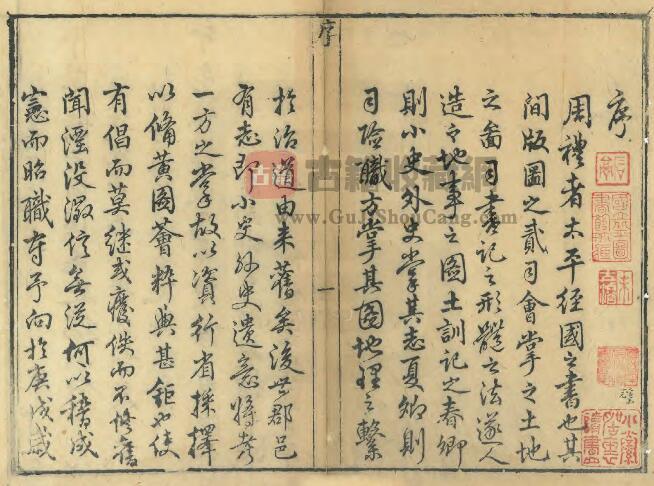 序
周禮者太平經國之書也其
間版圖之貳司會掌之土地
之圖司書記之形體之法遂人
造之地事之圖土訓記之春卿
則小史外史掌其志夏卿則
司險職方掌其圖地理之繫
序
一
於治道由来舊矣後世郡邑
有志即小史外史遺意将考
一方之掌故以資行省採擇
以俻黄圖薈粹典甚鉅也使
有倡而莫继或癈佚而不修舊
聞湮没徵信無從何以稽成
憲而昭職守予向於庚戌歳
古籍收藏網
www.GuJiShouCang.com